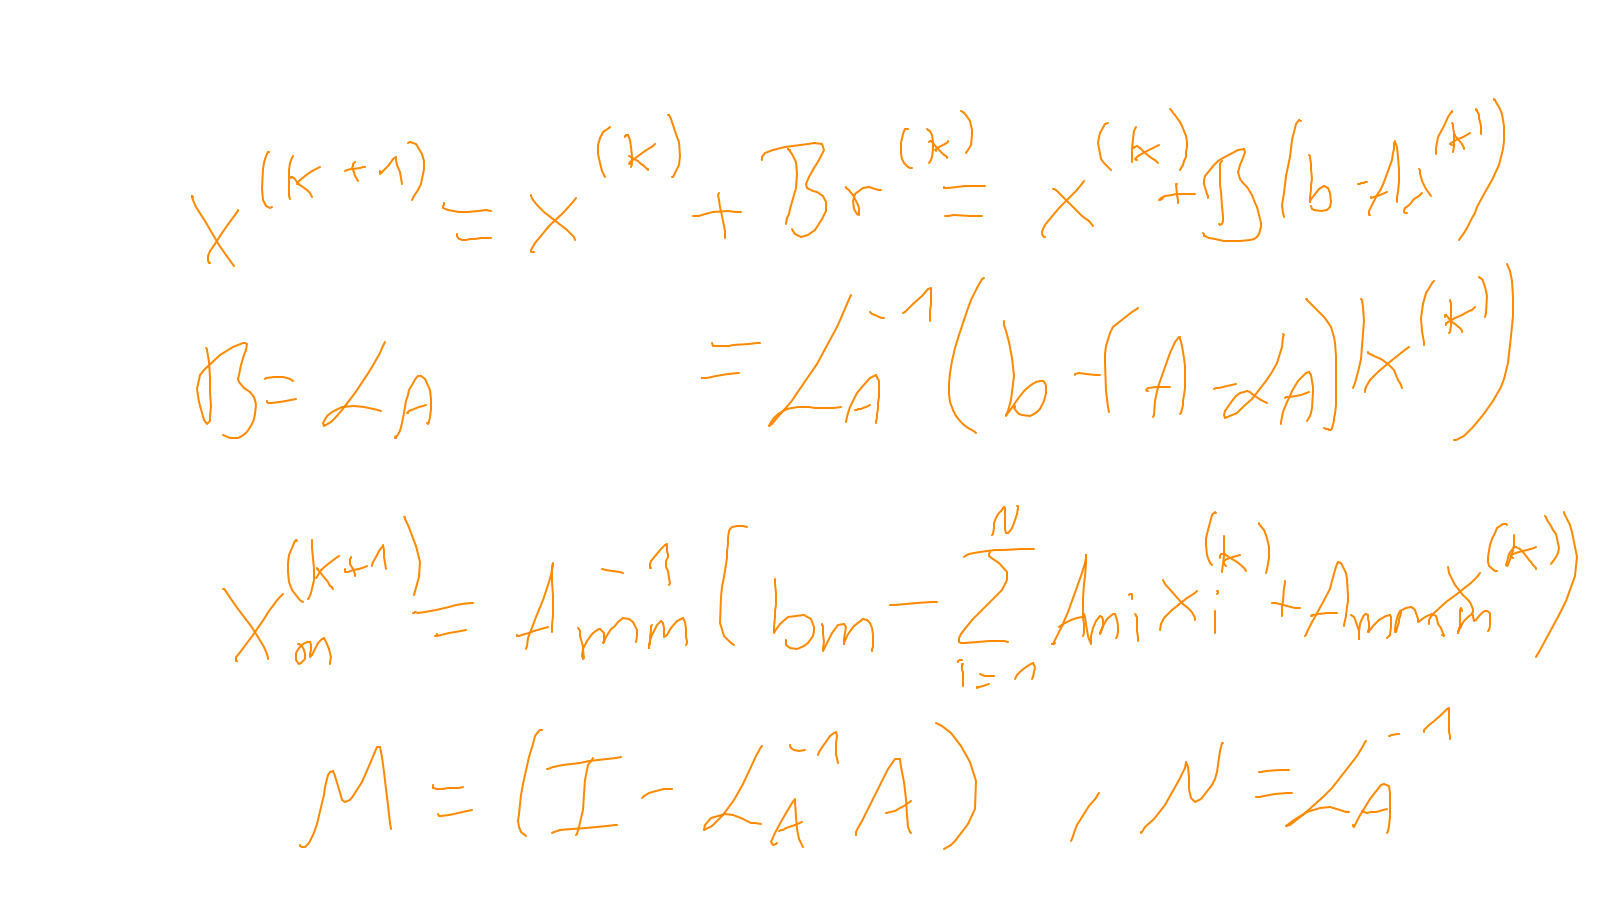 x^(k+1) = x^(k) + B r^(k) = x^(k) + B (b - A x^(k))
B = L_A = L_A^-1 (b - (A - L_A) x^(k))
x_m^(k+1) = A_mm^-1 (b_m - ∑_{i=1}^N A_mi x_i^(k) + A_mm x_m^(k))
M = (I - L_A^-1 A) , N = L_A^-1